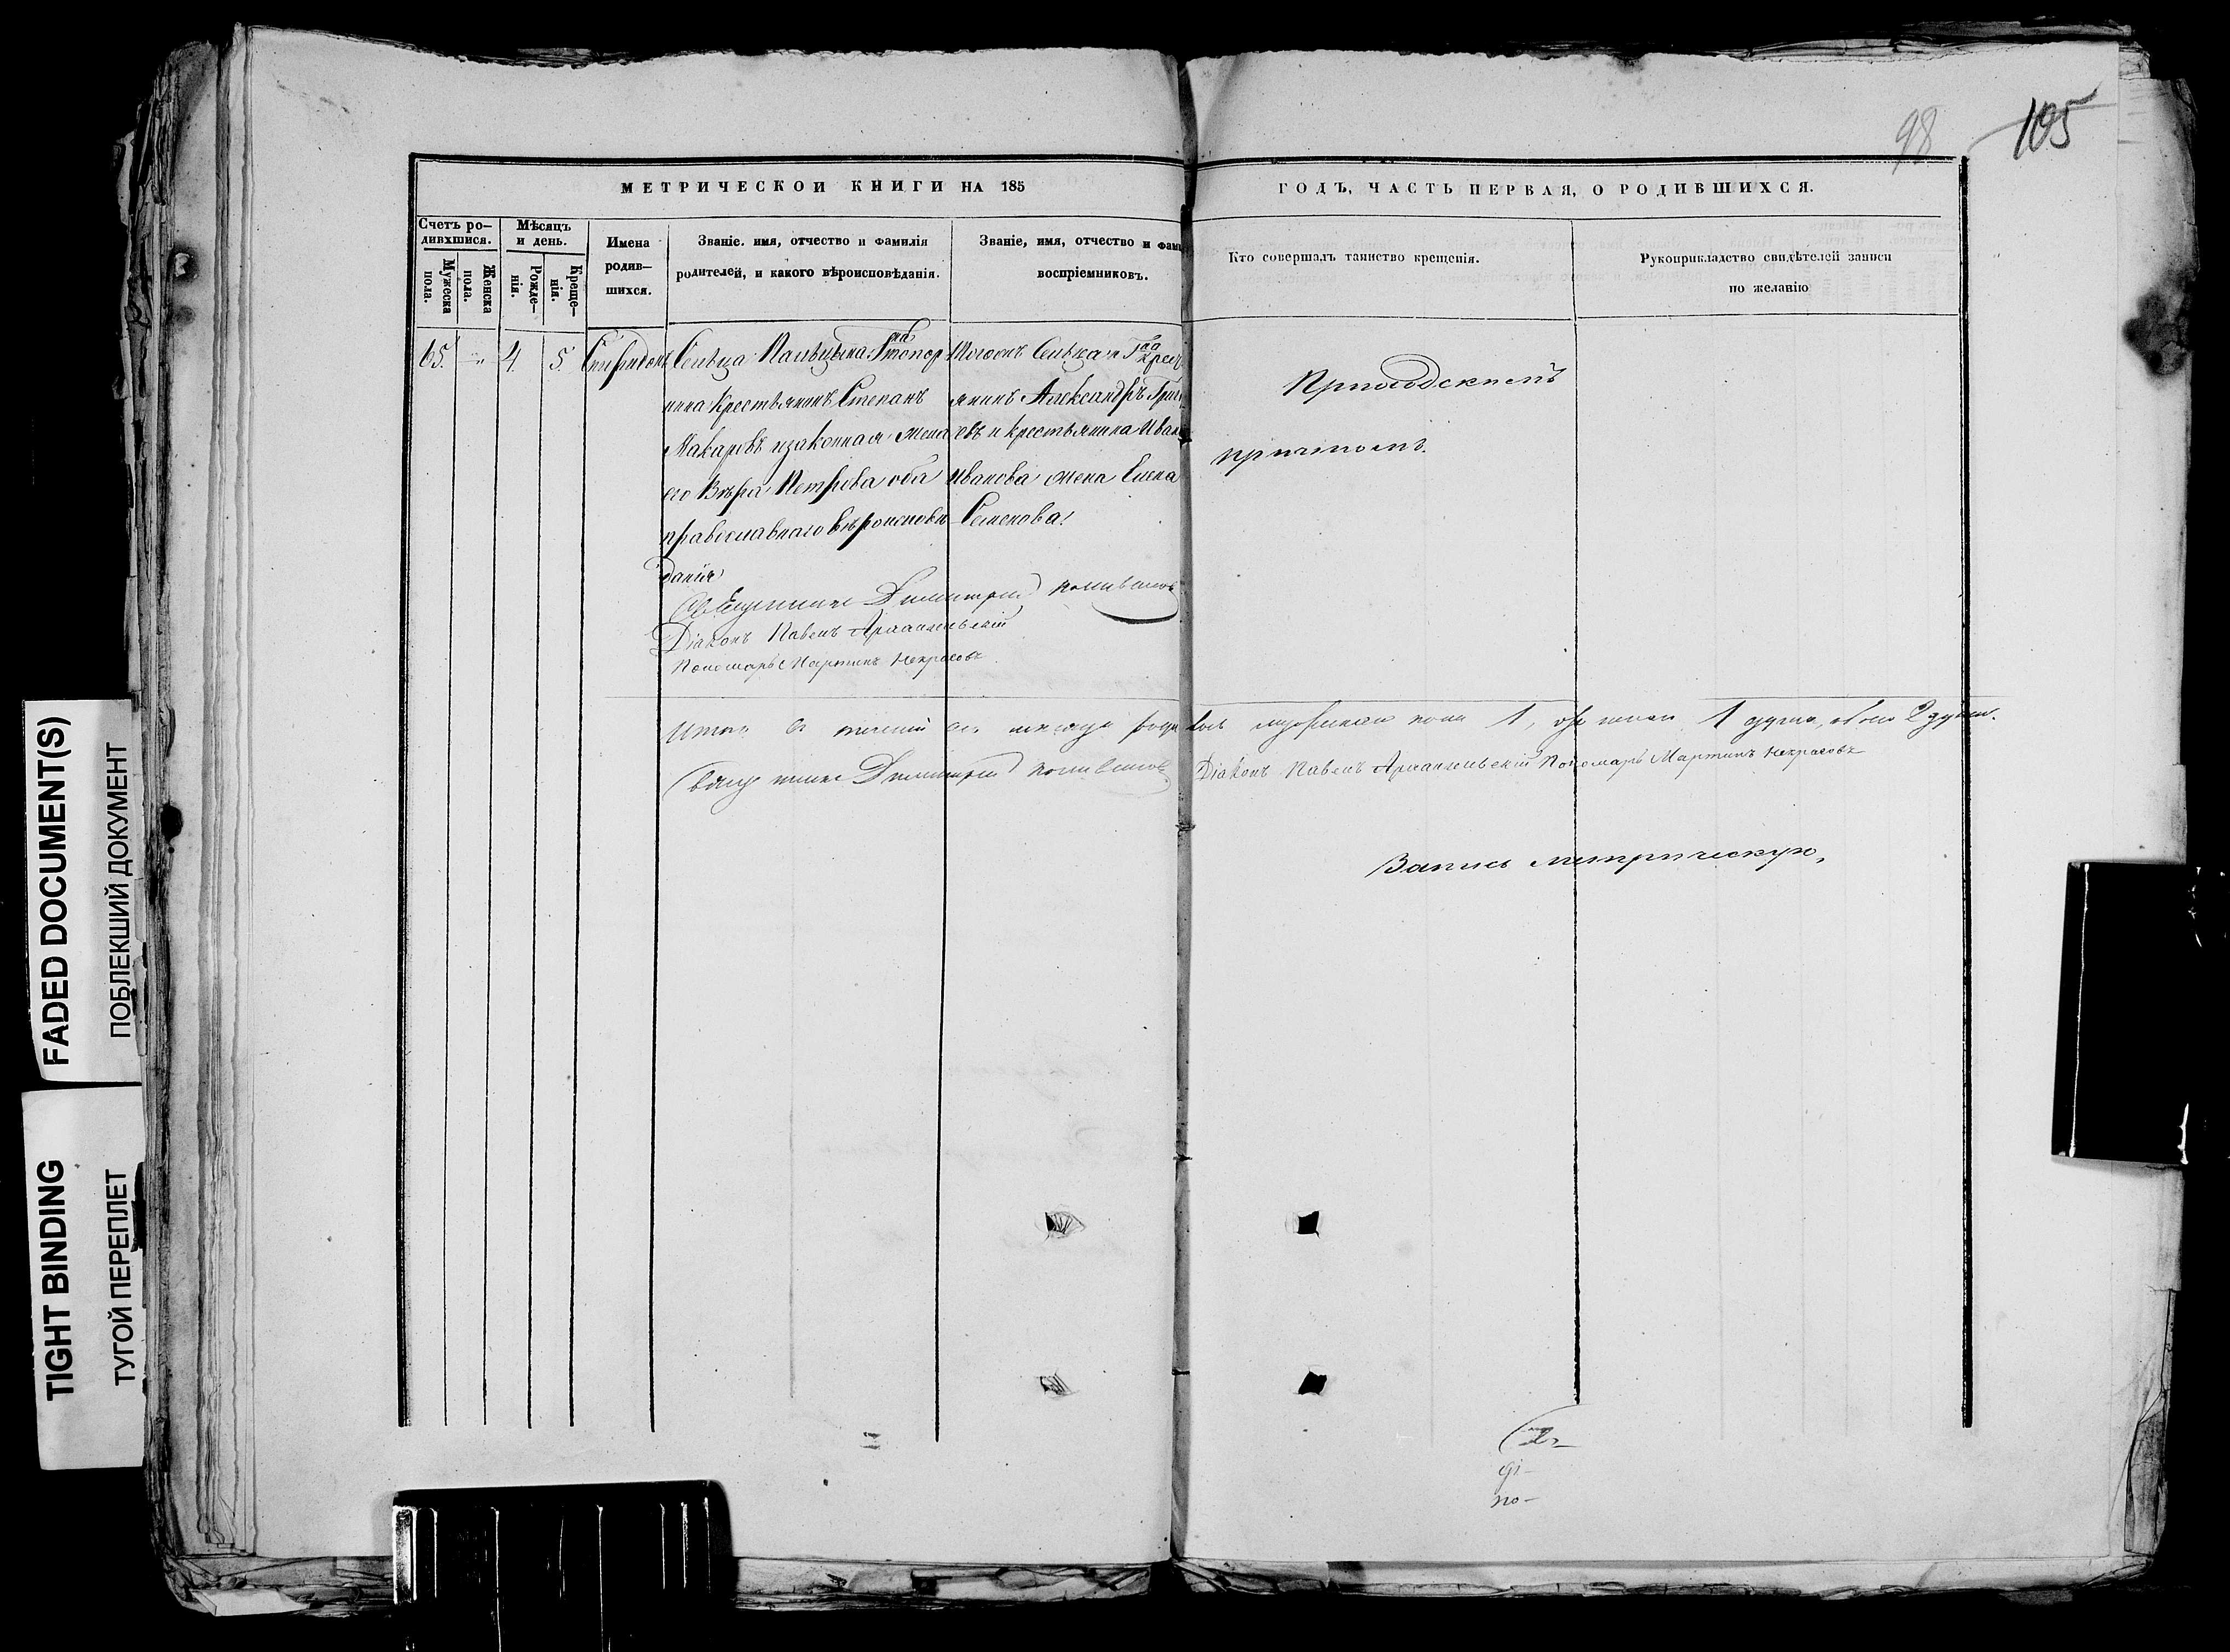 98 105
МЕТРИЧЕСКОЙ КНИГИ НА 185 ГОДЪ, ЧАСТЬ ПЕРВАЯ, О РОДИВШИХСЯ.
Счетъ ро-
дивхшися.
Мужеска
пола.
Женска
пола.
Мѣсяцъ
и день.
Рожде-
нія.
Креще-
нія.
Имена
родив-
шихся.
Званіе. имя, отчество и фамилія
родителей, и какого вѣроисповѣданія.
Званіе, имя, отчество и фам
воспріемниковъ.
Кто совершалъ таинство крещенія.
Рукоприкладство свидѣтелей записи
по желанію
65. " 4. 5. Спиридонъ
Сельца
нина Крестьянинъ Степанъ
Макаровъ и законная жена
его Вѣра Петрова оба
православнаго вѣроисповѣ
данія
тогожъ Сельца
янинъ Александръ
евъ и крестьянина Ивана
Иванова жена Елена
Семенова.
Приходскимъ
причтомъ.
Священникъ Димитрий
Діаконъ Павелъ Архангельскій
Пономарь Мартинъ Некрасовъ
Итого въ течении сего месяца мужеска пола 1, женска 1 душа, обоего 2 души.
Священникъ Димитрий
Діаконъ Павелъ Архангельскій Пономарь Мартинъ Некрасовъ
Запись метрическую,
ді-
по-
FADED DOCUMENT(S)
ПОБЛЕКШИЙ ДОКУМЕНТ
TIGHT BINDING
ТУГОЙ ПЕРЕПЛЕТ